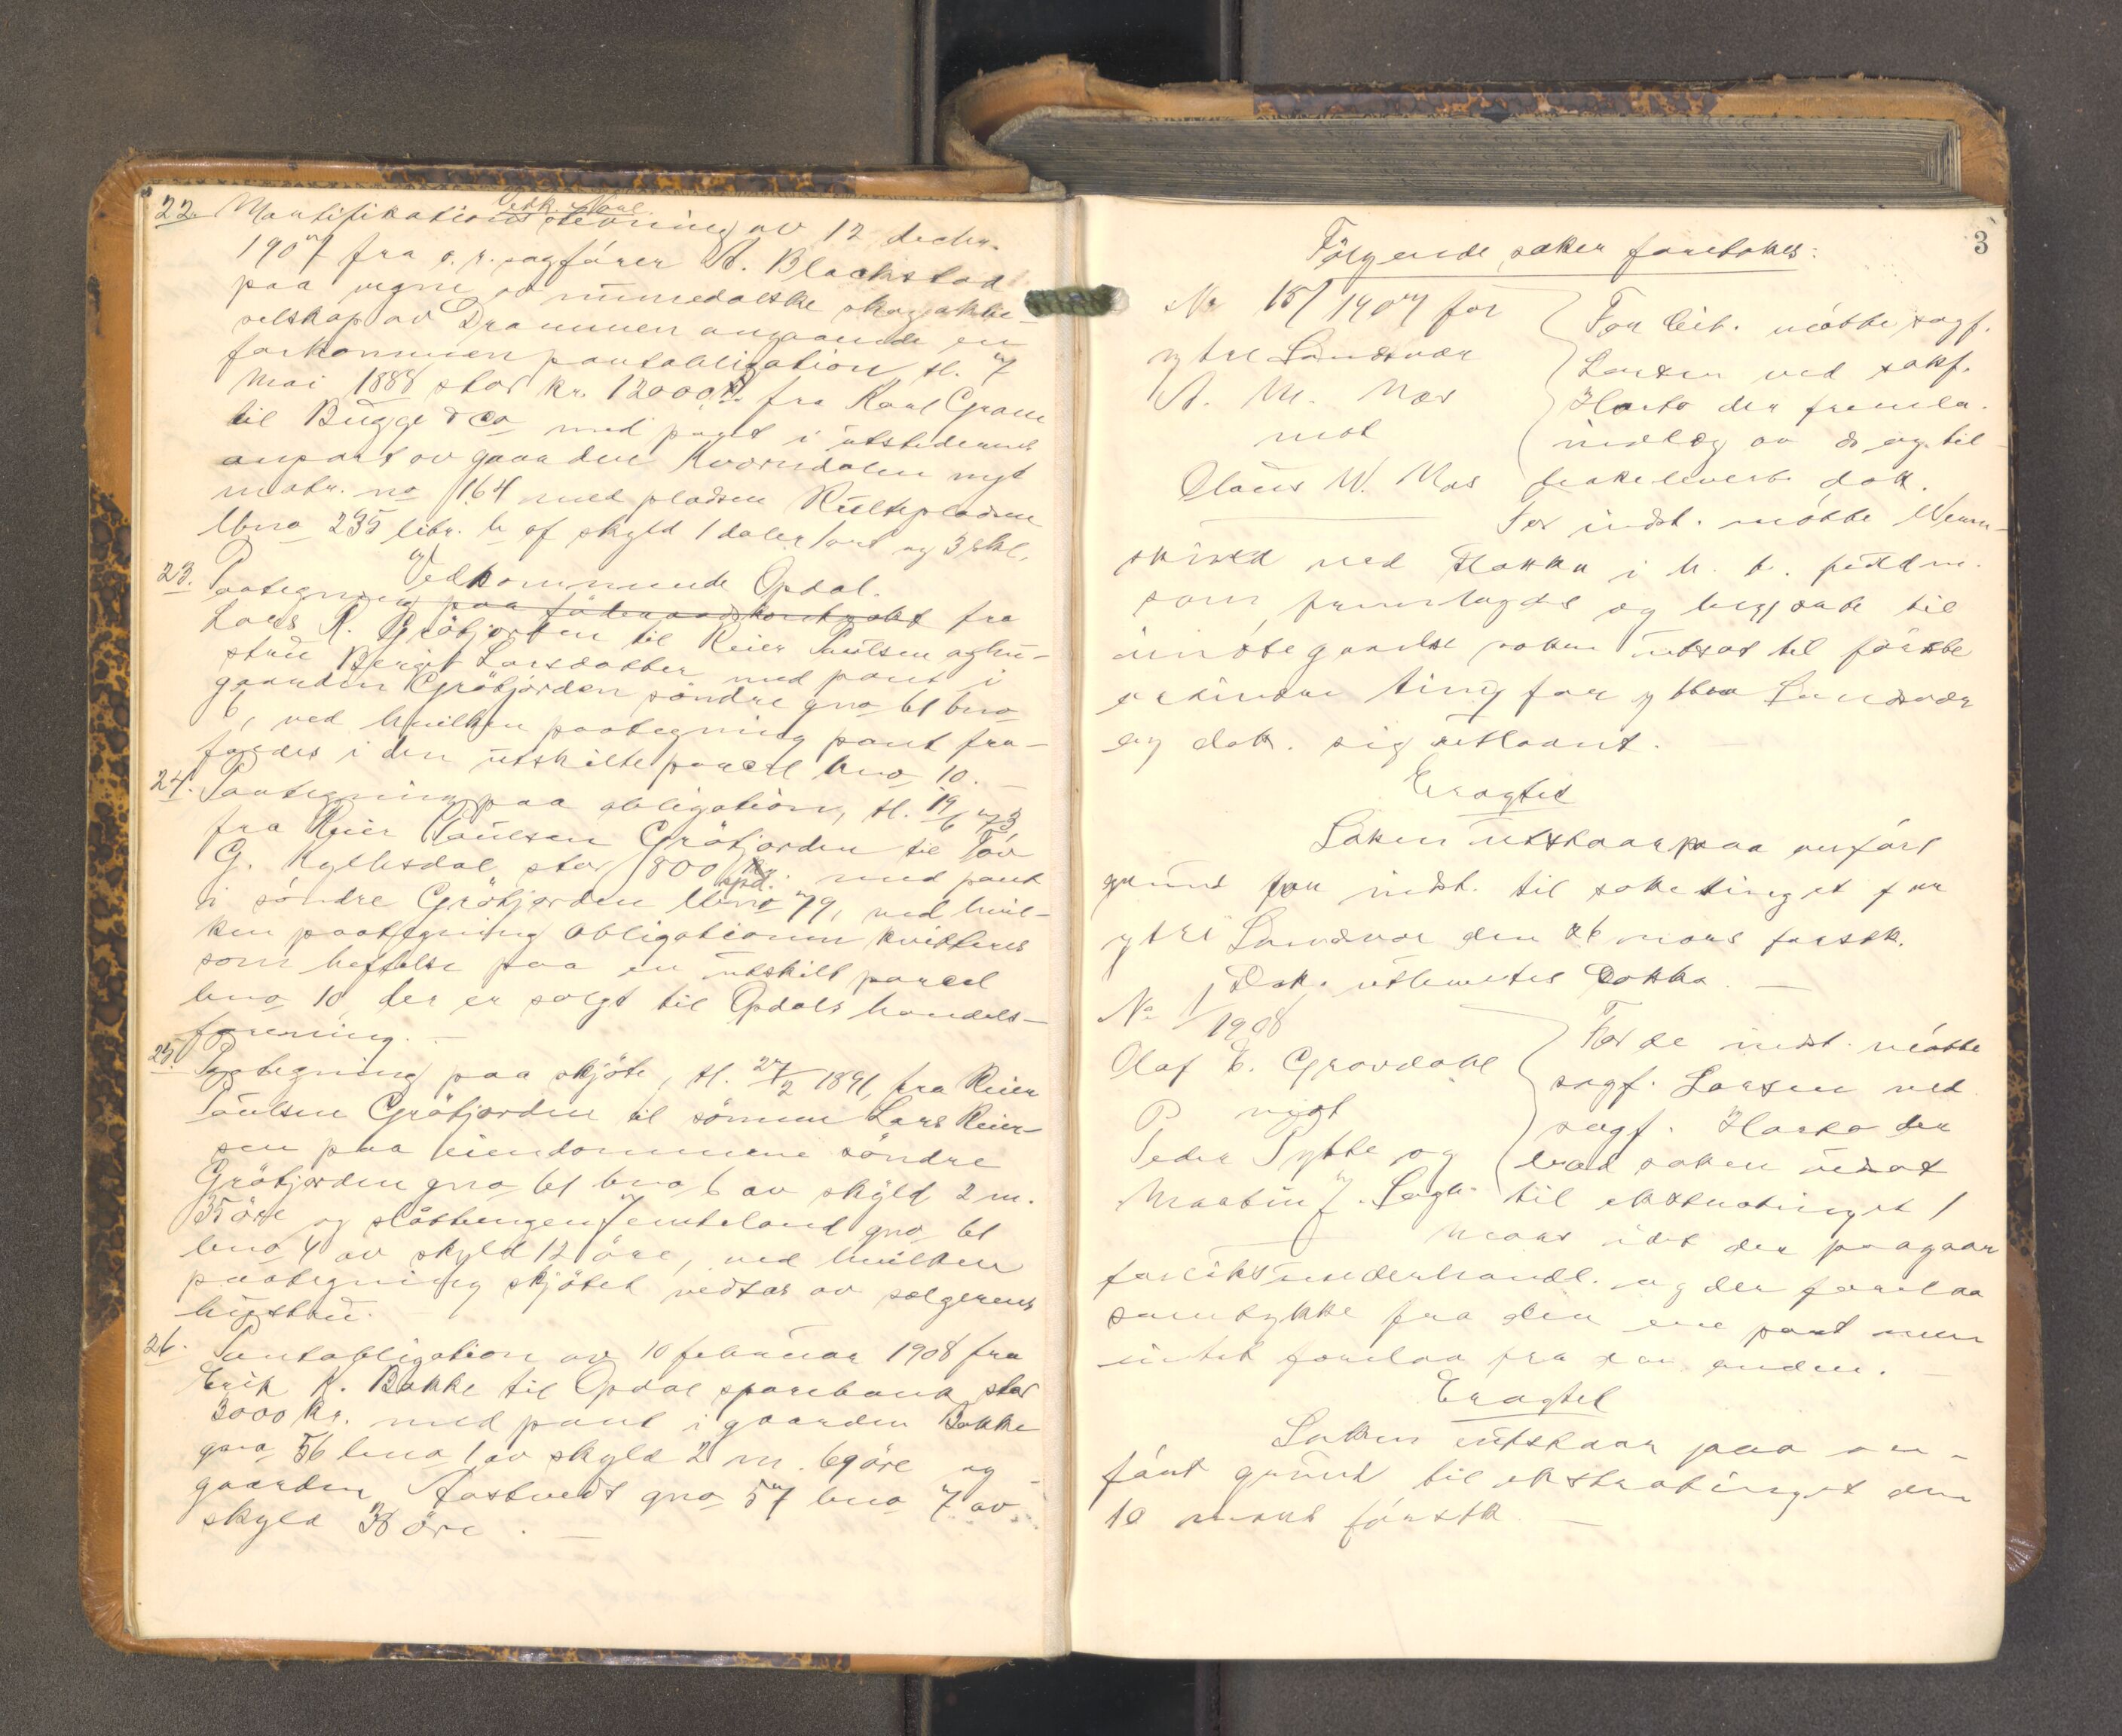 Vedk. Noré.
22. Mortifikationsstevning av 12 decbr.
1907 fra o. r. sagfører A. Blackstad
paa vegne av numedalske skogaktie-
selskap av Drammen angaaende en
forkommen pantobligation, tl. 7
mai 1888 stor kr. 12000 fra Karl Gram
til Bugge & Co med pant i utstederens
anpart av gaarden Kvorndalen nyt
matr. no 164 med pladsen Kultepladsen
lbno 235 litr. b af skyld 1 daler 1 ort og 3 skl.
Vedkommende Opdal.
23. Paategning paa föderaadskontrakt fra
Lars R. Grötjorden til Reier Paulsen og hu-
stru Bergit Larsdatter med pant i
gaarden Grötjorden söndre gno 61 bno
6, ved hvilken paategning pant fra-
faldes i den utskilte parcel bno 10.
24. Paategning paa obligation, tl. 19/6 73,
fra Reier Paulsen Grötjorden til Tov
G. stor 800 spd. med pant
i söndre Grötjorden lbno 79, ved hvil-
ken paategning obligationen kvitteres
som heftelse paa en utskilt parcel
bno 10, der er solgt til Opdals handels-
forening. -
25. Paategning paa skjöte, tl. 27/2 1891, fra Reier
Paulsen Grötjorden til sönnen Lars Reier-
sen paa eiendommene söndre
Grötjorden gno 61 bno 6 av skyld 2 m.
35 öre og slåttengen Jemteland gno 61
bno 4 av skyld 12 öre, ved hvilken
paategning skjötet vedtas av sælgerens
hustru.
26. Pantobligation av 10 februar 1908 fra
Erik K. Bakke til Opdal sparebank stor
3000 kr. med pant i gaarden Bakke
gno 56 bno 1 av skyld 2 m. 69 öre og
gaarden Aastvedt gno 57 bno 7 av
skyld 38 öre. -
3
Følgende saker foretokes:
No 15/1907 for
ytre Sandsvær
A. M. Mæs
mot
Olaus W. Mæs
For cit. mötte sagf.
Larsen ved sakf.
Harto der fremla
indlæg av ds og til-
bakeleverte dok.
For indst. mötte Wenn-
ved Hokka i h. t. fuldm.
som fremlagdes og begjærte til
imötegaaelse saken utsat til förste
ordinære ting for ytre Sandsvær
og dok. sig utlaant. -
Eragtet
Saken utstaar paa anfört
grund for indst. til saketinget for
ytre Sandsvær den 26 mars förstk.
Dok. utlevertes Hokka. -
No 1/1908
Olaf E. Gravdahl
mot
Peder Pytte og
Martin J. Lagh.
For de indst. mötte
sagf. Larsen ved
sagf. Harto der
bad saken utsat
til ekstratinget 1
mars idet der paagaar
forliksunderhandl. og der forelaa
samtykke fra den ene part men
intet forelaa fra den anden. -
Eragtet
Saken utstaar paa an-
fört grund til ekstratinget den
10 mars förstk. -